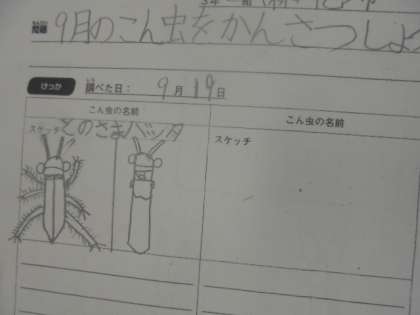 問題 9月のこん虫をかんさつしよ
けっか 調べた日： 9月19日
こん虫の名前 こん虫の名前
スケッチ とのさまバッタ スケッチ